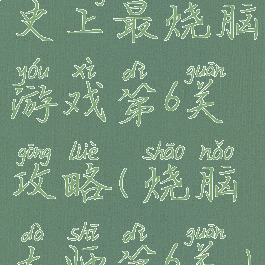 史上最烧脑
yóu xì dì guān
游戏第6关
gōng lüè shāo nǎo
攻略(烧脑
dà shī dì guān
大师第6关)